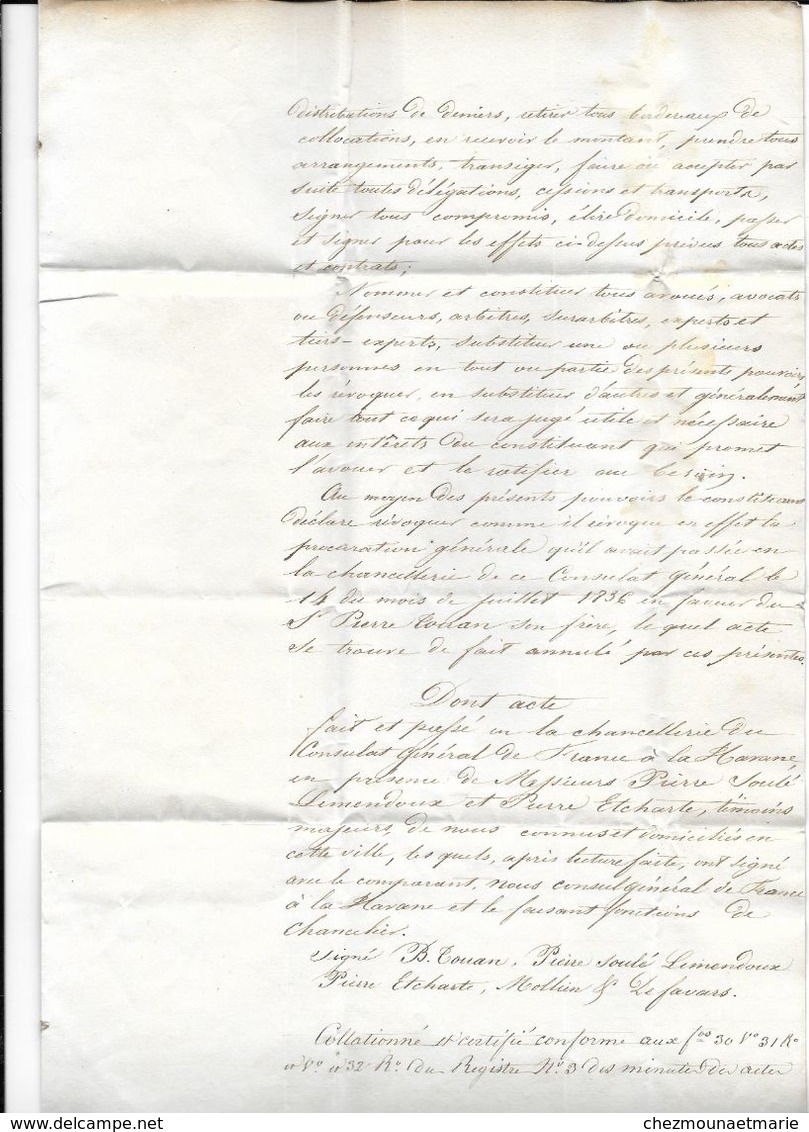 distributions de deniers, retirer tous bordereaux de
collocations, en recevoir le montant, prendre tous
arrangements, transiger, faire ou accepter par
suite toutes délégations, cessions et transports,
signer tous compromis, élire domicile, passer
et signer pour les effets ci-dessus prévus tous actes
et contrats;
Nommer et constituer tous avoués, avocats
ou défenseurs, arbitres, surarbitres, experts et
tiers-experts, substituer une ou plusieurs
personnes en tout ou partie des présents pouvoirs
les révoquer, en substituer d'autres et généralement
faire tout ce qui sera jugé utile et nécessaire
aux intérêts du constituant qui promet
l'avouer et le ratifier au besoin.
Au moyen des présents pouvoirs le constituant
déclare révoquer comme il révoque en effet la
procuration générale qu'il avait passée en
la chancellerie de ce Consulat général le
14 du mois de juillet 1836 en faveur du
S. Pierre Touan son frère, le quel acte
se trouve de fait annulé par ces présentes.
Dont acte
fait et passé en la chancellerie du
Consulat général de France à la Havane
en présence de Messieurs Pierre Soulé
Lemendoux et Pierre Etcharte, témoins
majeurs, de nous connus et domiciliés en
cette ville, les quels, après lecture faite, ont signé
avec le comparant, nous consul général de France
à la Havane et le faisant fonctions de
chancelier.
signé B. Touan, Pierre Soulé Lemendoux
Pierre Etcharte, Mollien & De favars.
Collationné et certifié conforme aux fos 30 Vo 31 Ro
et Vo et 32 Ro du Registre No 3 des minutes des actes
chezmounaetmarie